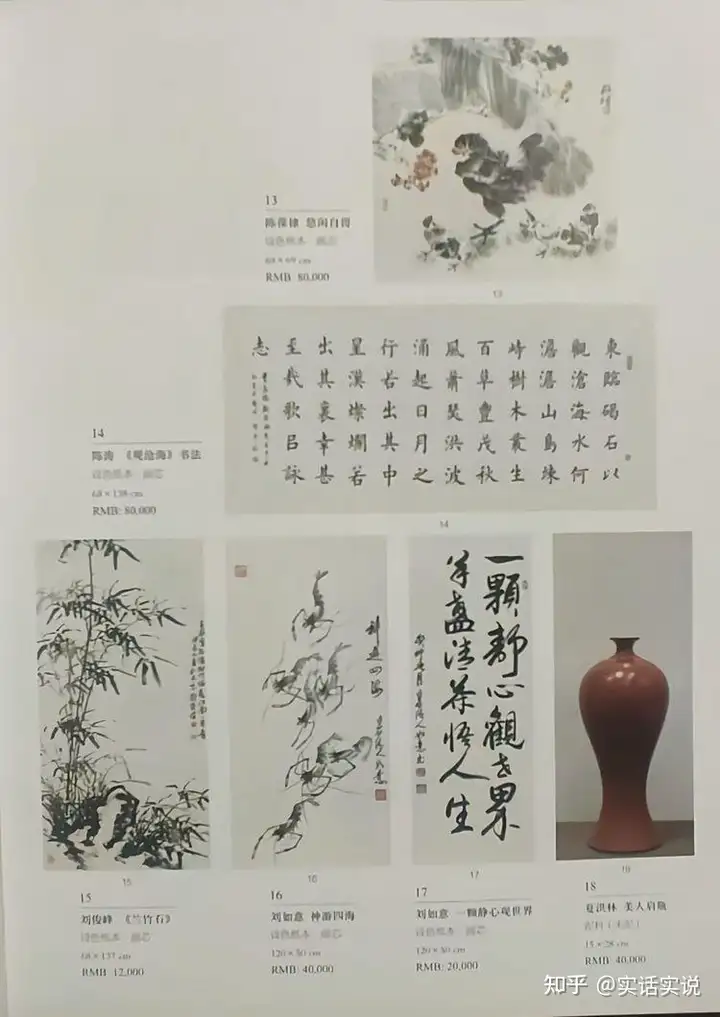 13
悠闲自得
设色纸本 画芯
RMB 80,000
13
東臨碣石以
觀滄海水何
澹澹山島竦
峙樹木叢生
百草豐茂秋
風蕭瑟洪波
涌起日月之
行若出其中
星漢燦爛若
出其裏幸甚
至哉歌㠯詠
志
14
陈涛 《观沧海》书法
设色纸本 画芯
68×138 cm
RMB: 80,000
14
神遊四海
一顆静心觀世界
半盞清茶悟人生
15
15
刘俊峰 《兰竹石》
设色纸本 画芯
68×137 cm
RMB 12,000
16
16
刘如意 神游四海
设色纸本 画芯
120×50 cm
RMB: 40,000
17
17
刘如意 一颗静心观世界
设色纸本 画芯
120×50 cm
RMB: 20,000
19
18
夏洪林 美人肩瓶
15×28 cm
RMB: 40,000
知乎 @实话实说